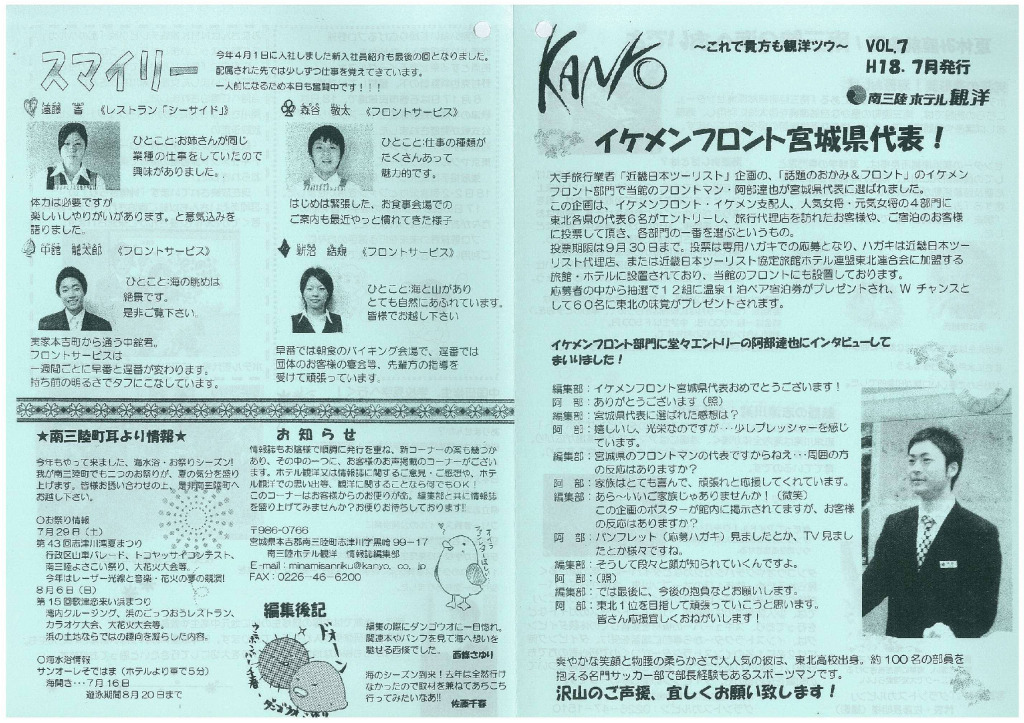 スマイリー
今年4月1日に入社しました新入社員紹介も最後の回となりました。
配属された先では少しずつ仕事を覚えてきています。
一人前になるため本日も奮闘中です!!!
遠藤 《レストラン「シーサイド」》
ひとこと:お姉さんが同じ
業種の仕事をしていたので
興味がありました。
体力は必要ですが
楽しいしやりがいがあります。と意気込みを
語りました。
森谷 敬太 《フロントサービス》
ひとこと:仕事の種類が
たくさんあって
魅力的です。
はじめは緊張した、お食事会場での
ご案内も最近やっと慣れてきた様子
中館 龍太郎 《フロントサービス》
ひとこと:海の眺めは
絶景です。
是非ご覧下さい。
実家本吉町から通う中館君。
フロントサービスは
一週間ごとに早番と遅番が変わります。
持ち前の明るさでタフにこなしています。
新沼 結規 《フロントサービス》
ひとこと:海と山があり
とても自然にあふれています。
皆様でお越し下さい
早番では朝食のバイキング会場で、遅番では
団体のお客様の宴会等、先輩方の指導を
受けて頑張っています。
★南三陸町耳より情報★
今年もやって来ました、海水浴・お祭りシーズン!
我が南三陸町でも二つのお祭りが、夏の気分を盛り
上げます。皆様お誘い合わせの上、是非南三陸町へ
お越し下さい。
○お祭り情報
7月29日(土)
第43回志津川湾夏まつり
行政区山車パレード、トコヤッサイコンテスト、
南三陸よさこい祭り、大花火大会等。
今年はレーザー光線と音楽・花火の夢の競演!
8月6日(日)
第15回歌津恋来い浜まつり
湾内クルージング、浜のごっつおうレストラン、
カラオケ大会、大花火大会等。
浜の土地ならではの趣向を凝らした内容。
○海水浴情報
サンオーレそではま(ホテルより車で5分)
海開き・・・7月16日
遊泳期間8月20日まで
お知らせ
情報誌もお陰様で順調に発行を重ね、新コーナーの案も幾つか
あり、その中の一つに、お客様のお声掲載のコーナーがござい
ます。ホテル観洋又は情報誌に関するご意見・ご感想や、ホテ
ル観洋での思い出等、観洋に関することなら何でもOK!
このコーナーはお客様からのお便りが命。編集部と共に情報誌
を盛り上げてみませんか?お便りお待ちしております!!
〒986-0766
宮城県本吉郡南三陸町志津川字黒崎99-17
南三陸ホテル観洋 情報誌編集部
E-mail:minamisanriku@kanyo.co.jp
FAX:0226-46-6200
編集後記
ドォーン
編集の際にダンゴウオに一目惚れ。
関連本やパンフを見て海へ想いを
馳せる西條でした。 西條さゆり
海のシーズン到来!去年は全然行け
なかったので取材を兼ねてあちこち
行ってみたいなあ!! 佐藤千春
KANYO
〜これで貴方も観洋ツウ〜
VOL.7
H18.7月発行
南三陸ホテル観洋
イケメンフロント宮城県代表!
大手旅行業者「近畿日本ツーリスト」企画の、「話題のおかみ&フロント」のイケメン
フロント部門で当館のフロントマン・阿部達也が宮城県代表に選ばれました。
この企画は、イケメンフロント・イケメン支配人、人気女将・元気女将の4部門に
東北各県の代表6名がエントリーし、旅行代理店を訪れたお客様や、ご宿泊のお客様
に投票して頂き、各部門の一番を選ぶというもの。
投票期限は9月30日まで。投票は専用ハガキでの応募となり、ハガキは近畿日本ツー
リスト代理店、または近畿日本ツーリスト協定旅館ホテル連盟東北連合会に加盟する
旅館・ホテルに設置されており、当館のフロントにも設置しております。
応募者の中から抽選で12組に温泉1泊ペア宿泊券がプレゼントされ、Wチャンスと
して60名に東北の味覚がプレゼントされます。
イケメンフロント部門に堂々エントリーの阿部達也にインタビューして
まいりました!
編集部:イケメンフロント宮城県代表おめでとうございます!
阿 部:ありがとうございます(照)
編集部:宮城県代表に選ばれた感想は?
阿 部:嬉しいし、光栄なのですが・・・少しプレッシャーを感じ
ています。
編集部:宮城県のフロントマンの代表ですからねえ・・・周囲の方
の反応はありますか?
阿 部:家族はとても喜んで、頑張れと応援してくれています。
編集部:あら〜いいご家族じゃありませんか!(微笑)
この企画のポスターが館内に掲示されてますが、お客様
の反応はありますか?
阿 部:パンフレット(応募ハガキ)見ましたとか、TV見まし
たとか様々ですね。
編集部:そうして段々と顔が知られていくんですよ。
阿 部:(照)
編集部:では最後に、今後の抱負などお願いします。
阿 部:東北1位を目指して頑張っていこうと思います。
皆さん応援宜しくおねがいします!
爽やかな笑顔と物腰の柔らかさで大人気の彼は、東北高校出身。約100名の部員を
抱える名門サッカー部で部長経験もあるスポーツマンです。
沢山のご声援、宜しくお願い致します!